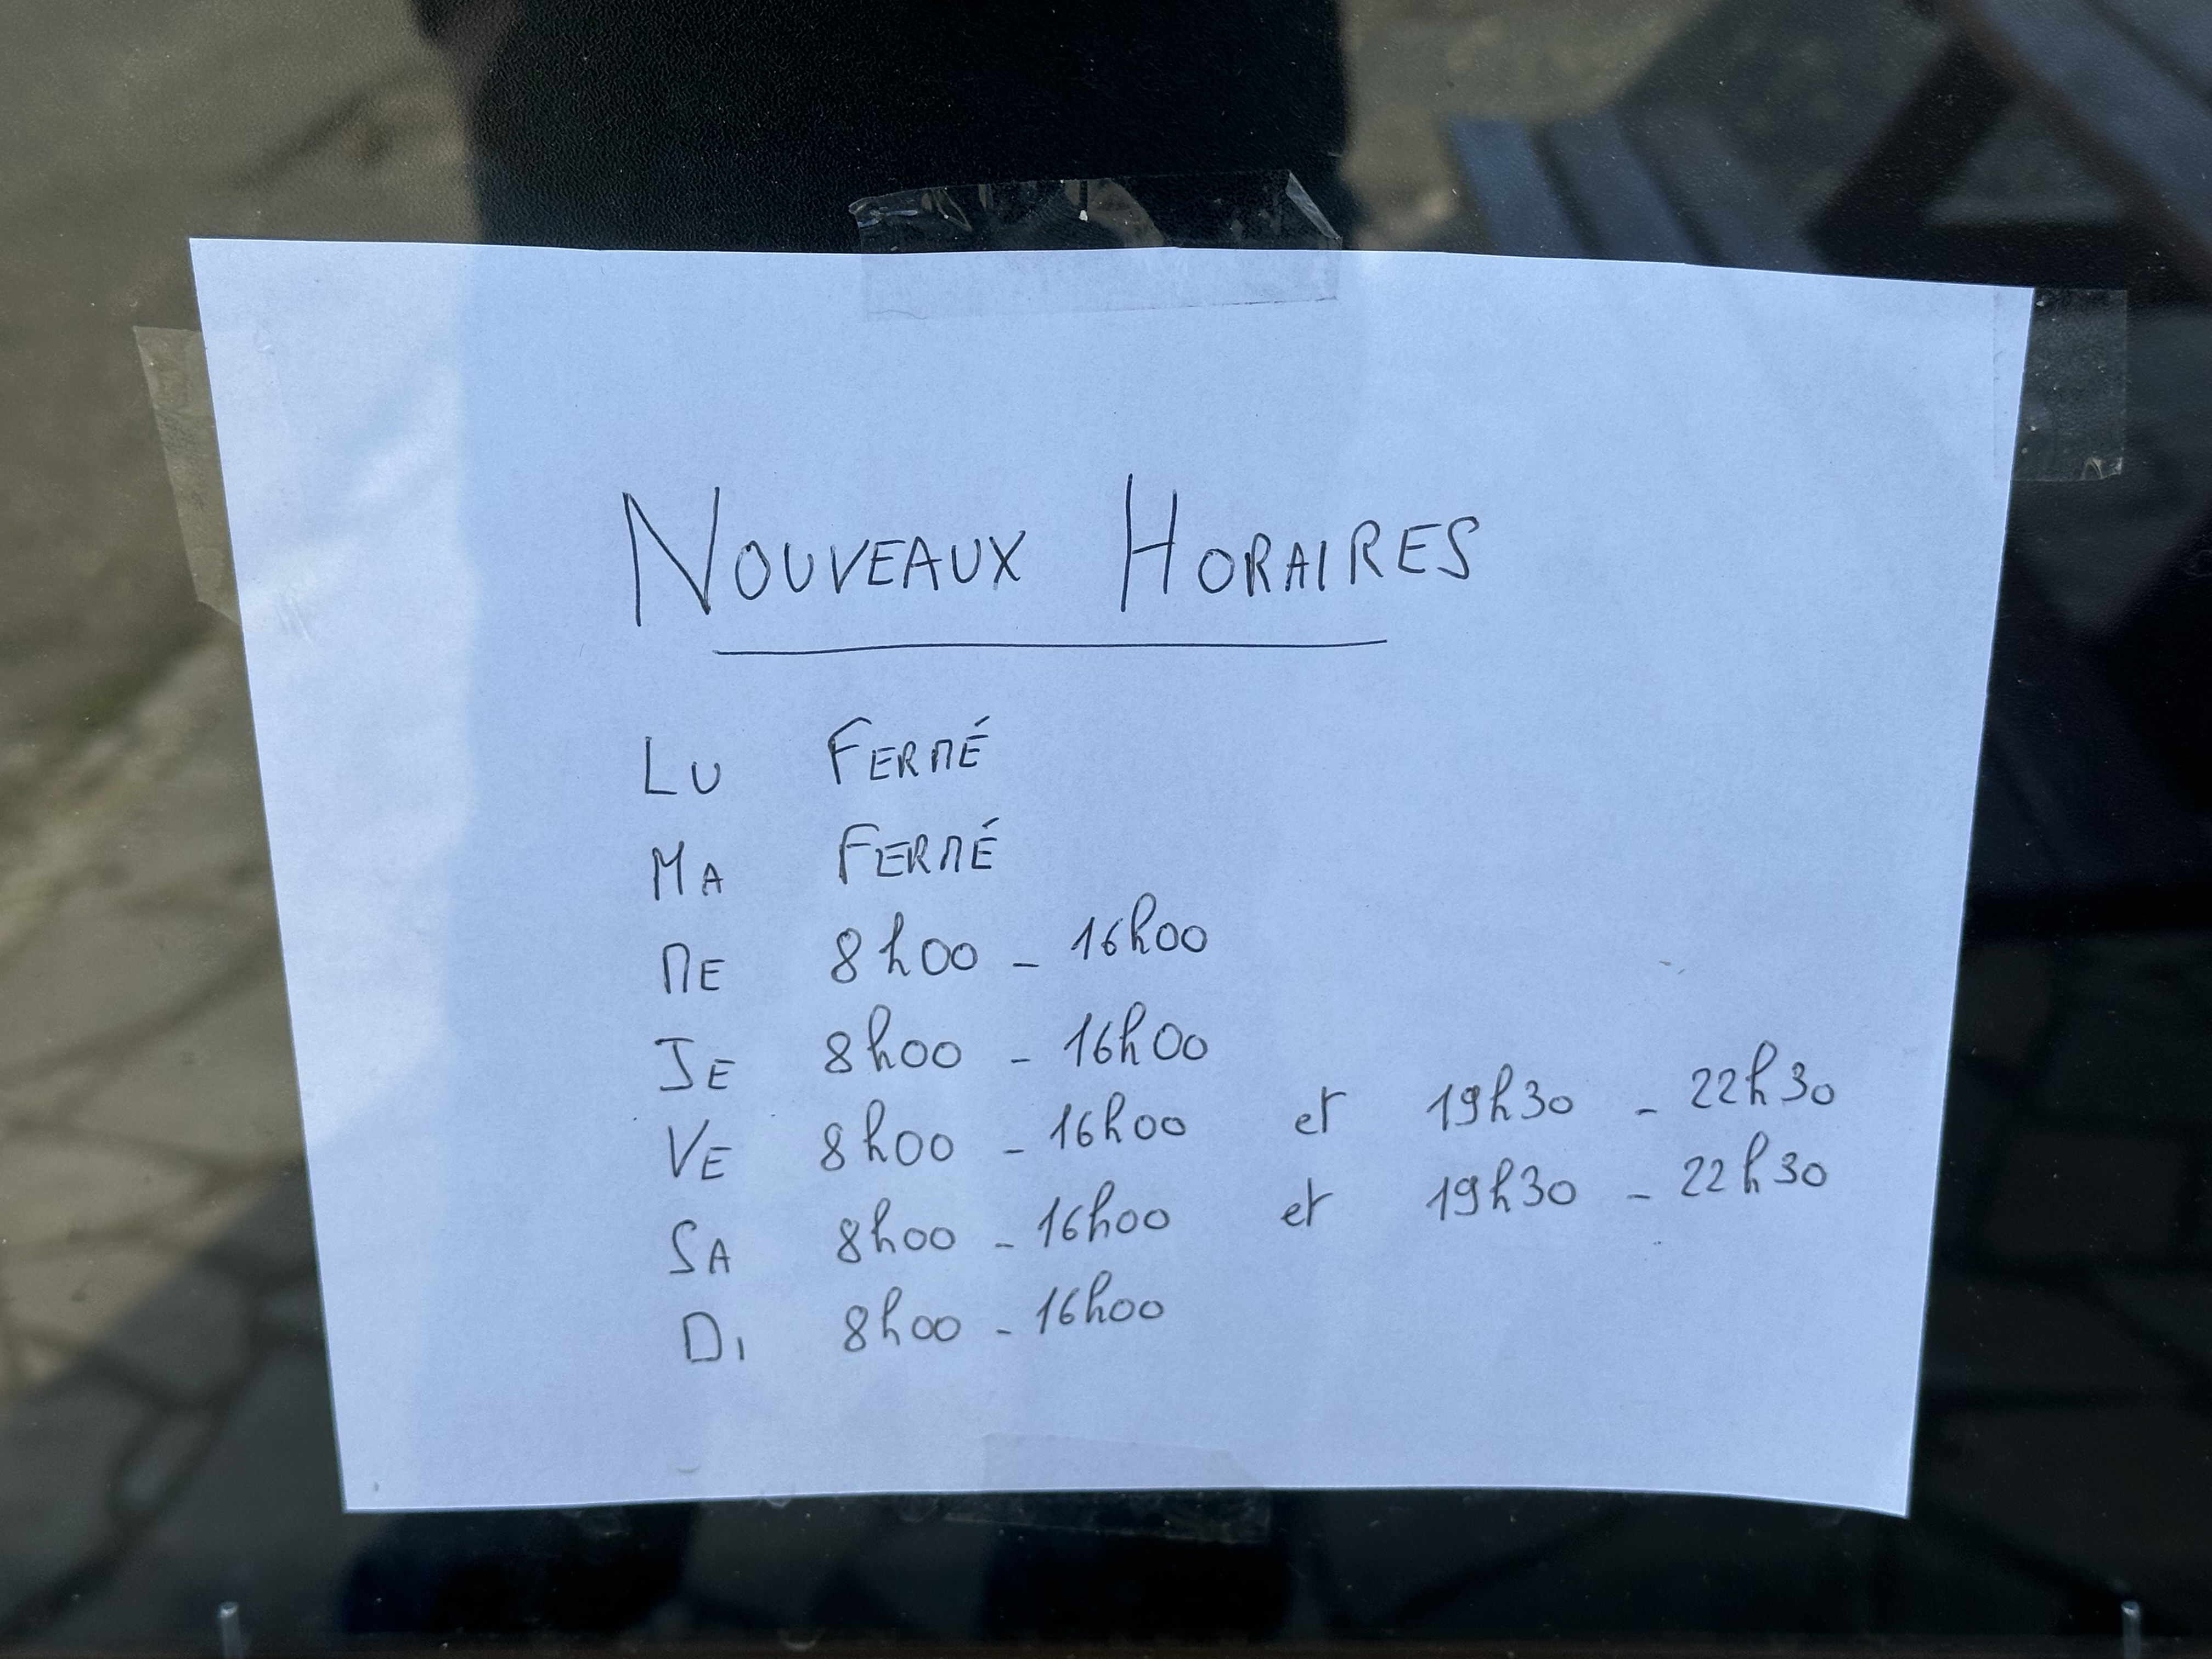 NOUVEAUX HORAIRES
LU FERMÉ
MA FERMÉ
ME 8h00 - 16h00
JE 8h00 - 16h00
VE 8h00 - 16h00 et 19h30 - 22h30
SA 8h00 - 16h00 et 19h30 - 22h30
DI 8h00 - 16h00